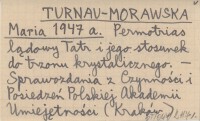 TURNAU-MORAWSKA
Maria 1947 a. Permotrias
lądowy Tatr i jego stosunek
do trzonu krystalicznego. —
Sprawozdania z Czynności i
Posiedzeń Polskiej Akademii
Umiejętności (Kraków)